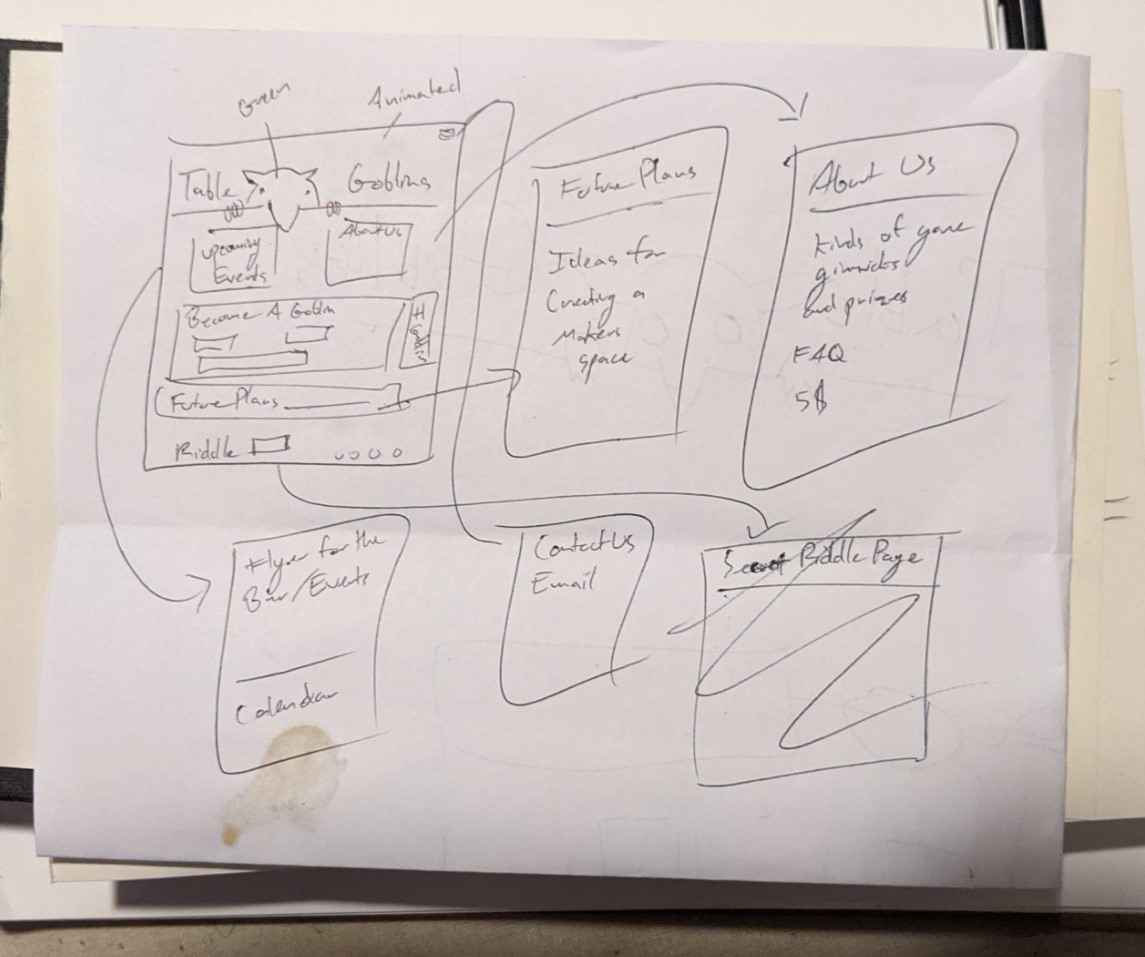 Green
Animated
Table Goblins
Upcoming
Events
About Us
Become A Goblin
Future Plans
Riddle
Future Plans
Ideas for
Creating a
Makers
space
About Us
Kinds of game
gimmicks
and prizes
FAQ
5$
Flyer for the
Bar/Events
Calendar
Contact Us
Email
Secret Riddle Page